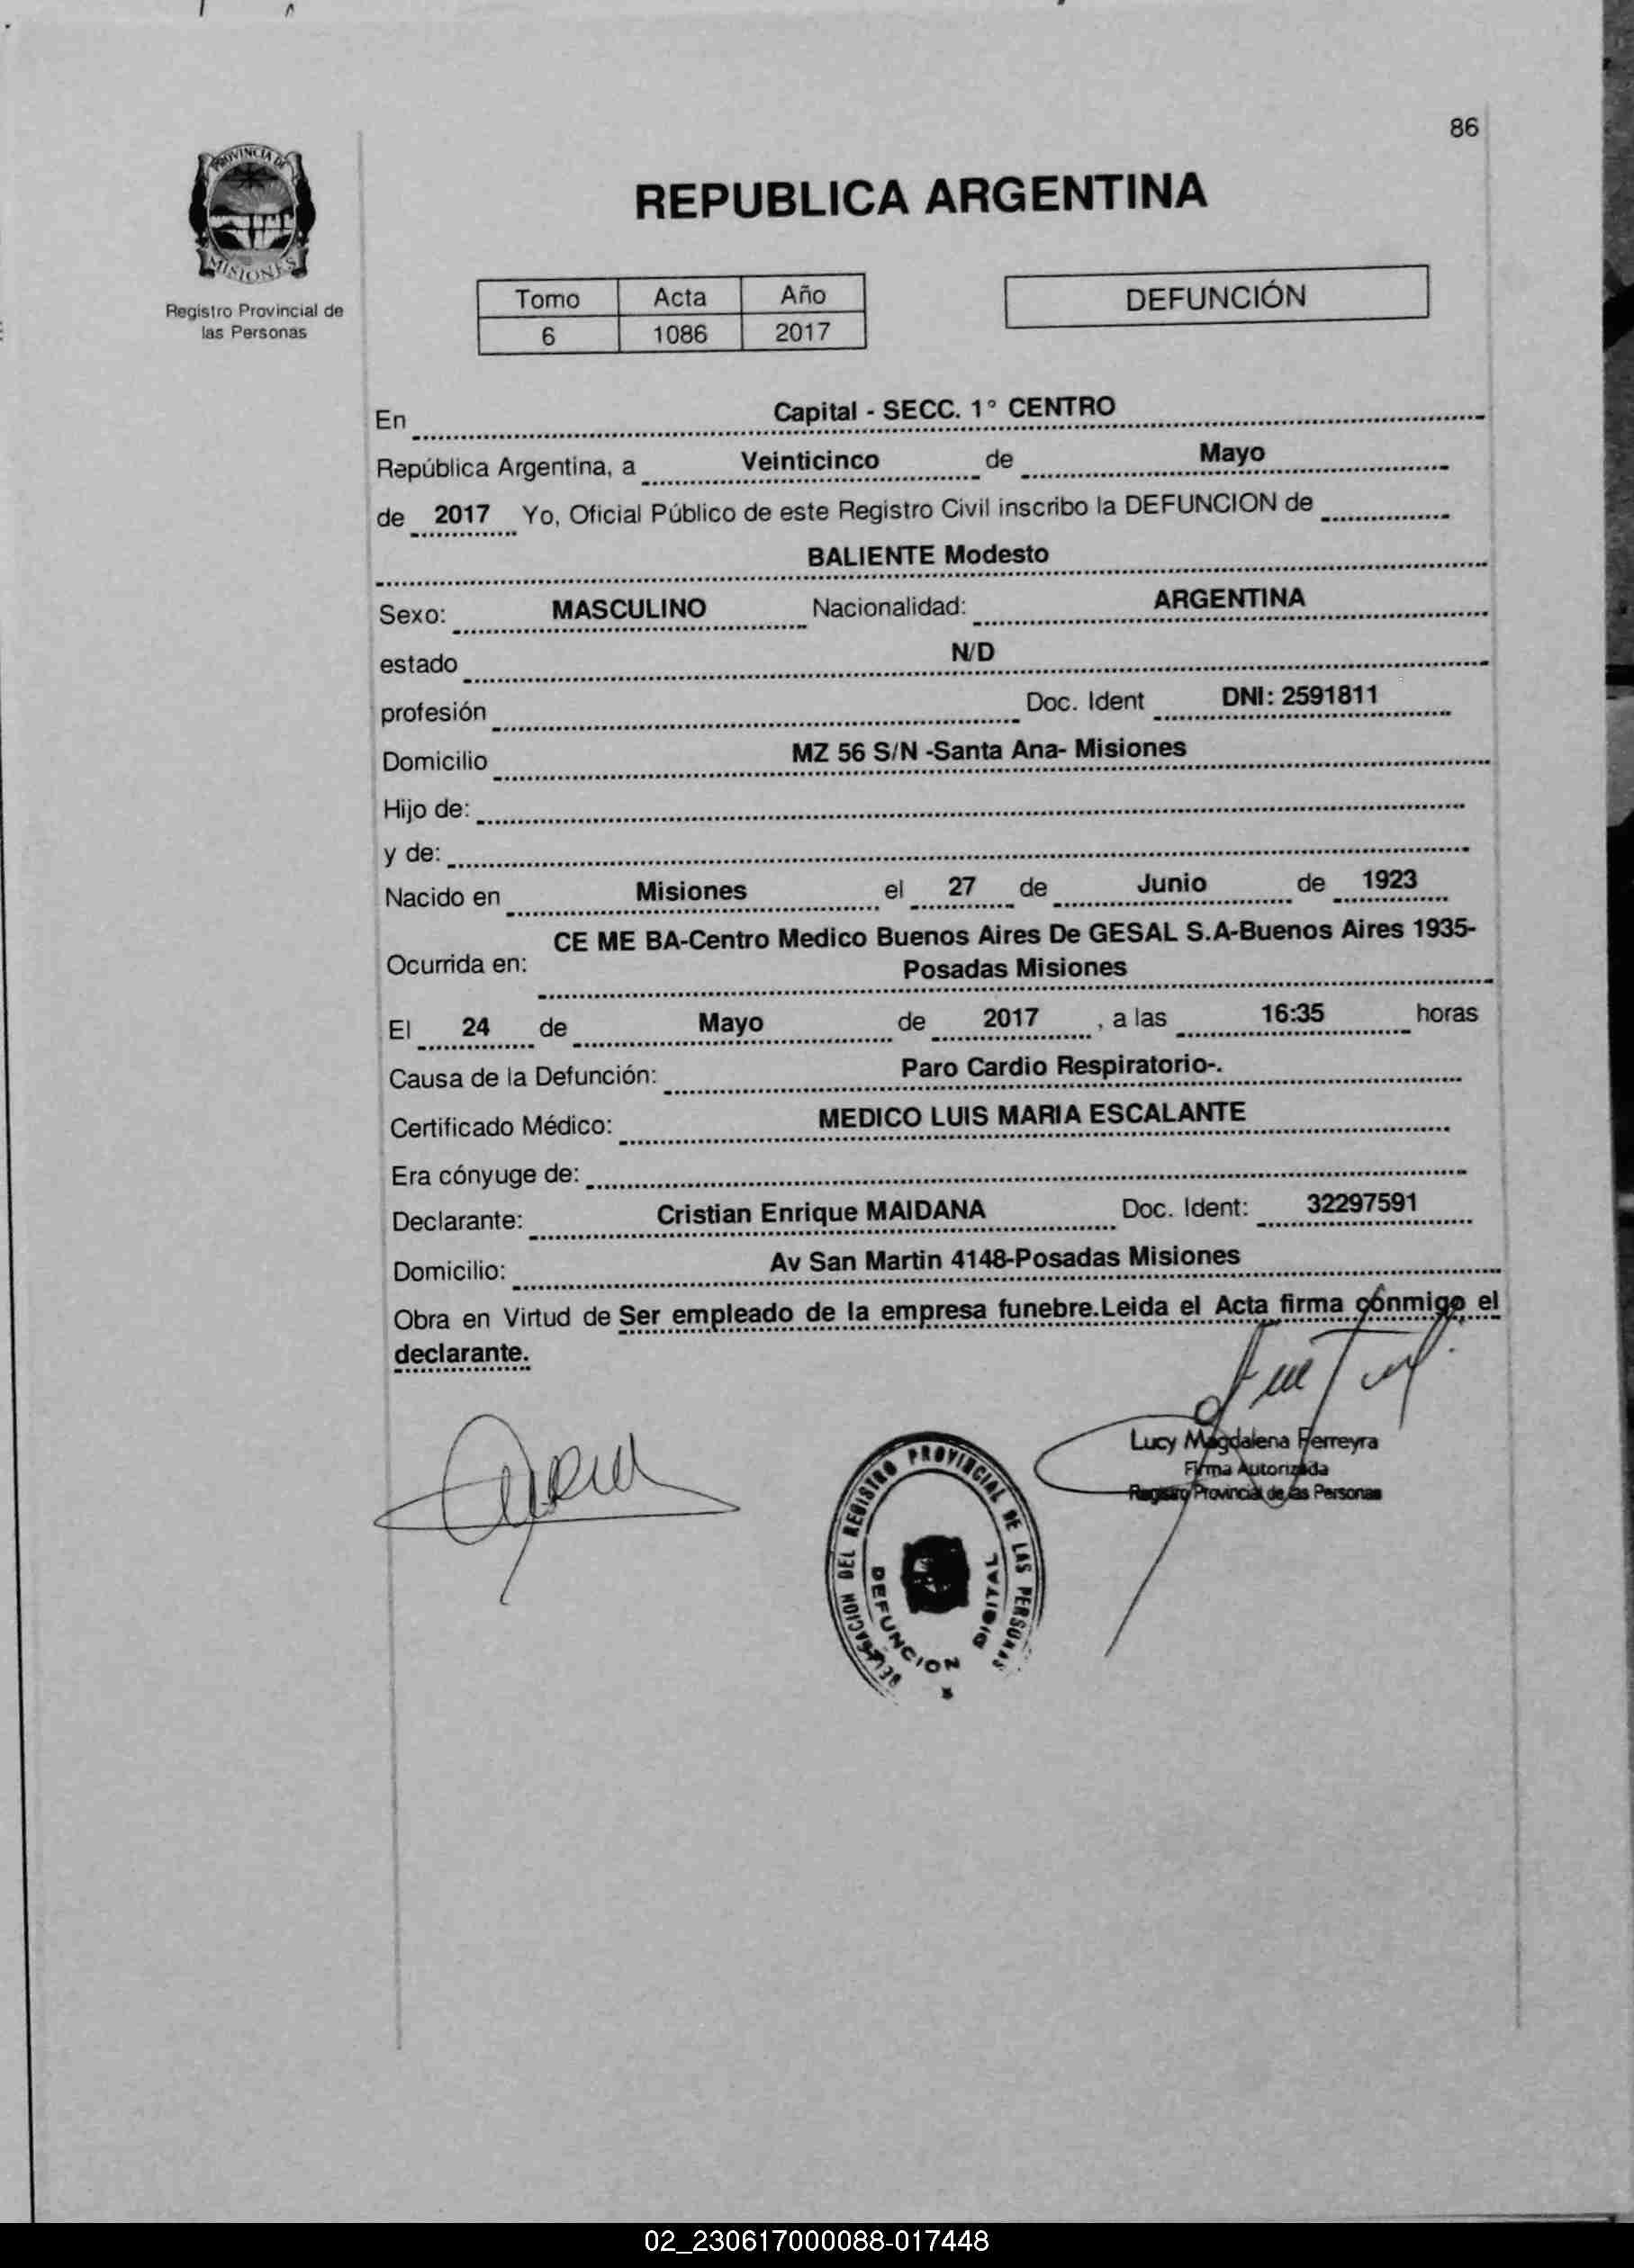 86
PROVINCIA DE
MISIONES
Registro Provincial de
las Personas
REPUBLICA ARGENTINA
Tomo Acta Año
6 1086 2017
DEFUNCIÓN
En Capital - SECC. 1° CENTRO
República Argentina, a Veinticinco de Mayo
de 2017 Yo, Oficial Público de este Registro Civil inscribo la DEFUNCION de
BALIENTE Modesto
Sexo: MASCULINO Nacionalidad: ARGENTINA
estado N/D
profesión Doc. Ident DNI: 2591811
Domicilio MZ 56 S/N -Santa Ana- Misiones
Hijo de:
y de:
Nacido en Misiones el 27 de Junio de 1923
CE ME BA-Centro Medico Buenos Aires De GESAL S.A-Buenos Aires 1935-
Ocurrida en: Posadas Misiones
El 24 de Mayo de 2017 , a las 16:35 horas
Causa de la Defunción: Paro Cardio Respiratorio-.
Certificado Médico: MEDICO LUIS MARIA ESCALANTE
Era cónyuge de:
Declarante: Cristian Enrique MAIDANA Doc. Ident: 32297591
Domicilio: Av San Martin 4148-Posadas Misiones
Obra en Virtud de Ser empleado de la empresa funebre.Leida el Acta firma conmigo el
declarante.
Lucy Magdalena Ferreyra
Firma Autorizada
Registro Provincial de las Personas
DEL REGISTRO PROVINCIAL DE LAS PERSONAS
DEFUNCION DIGITAL
02_230617000088-017448